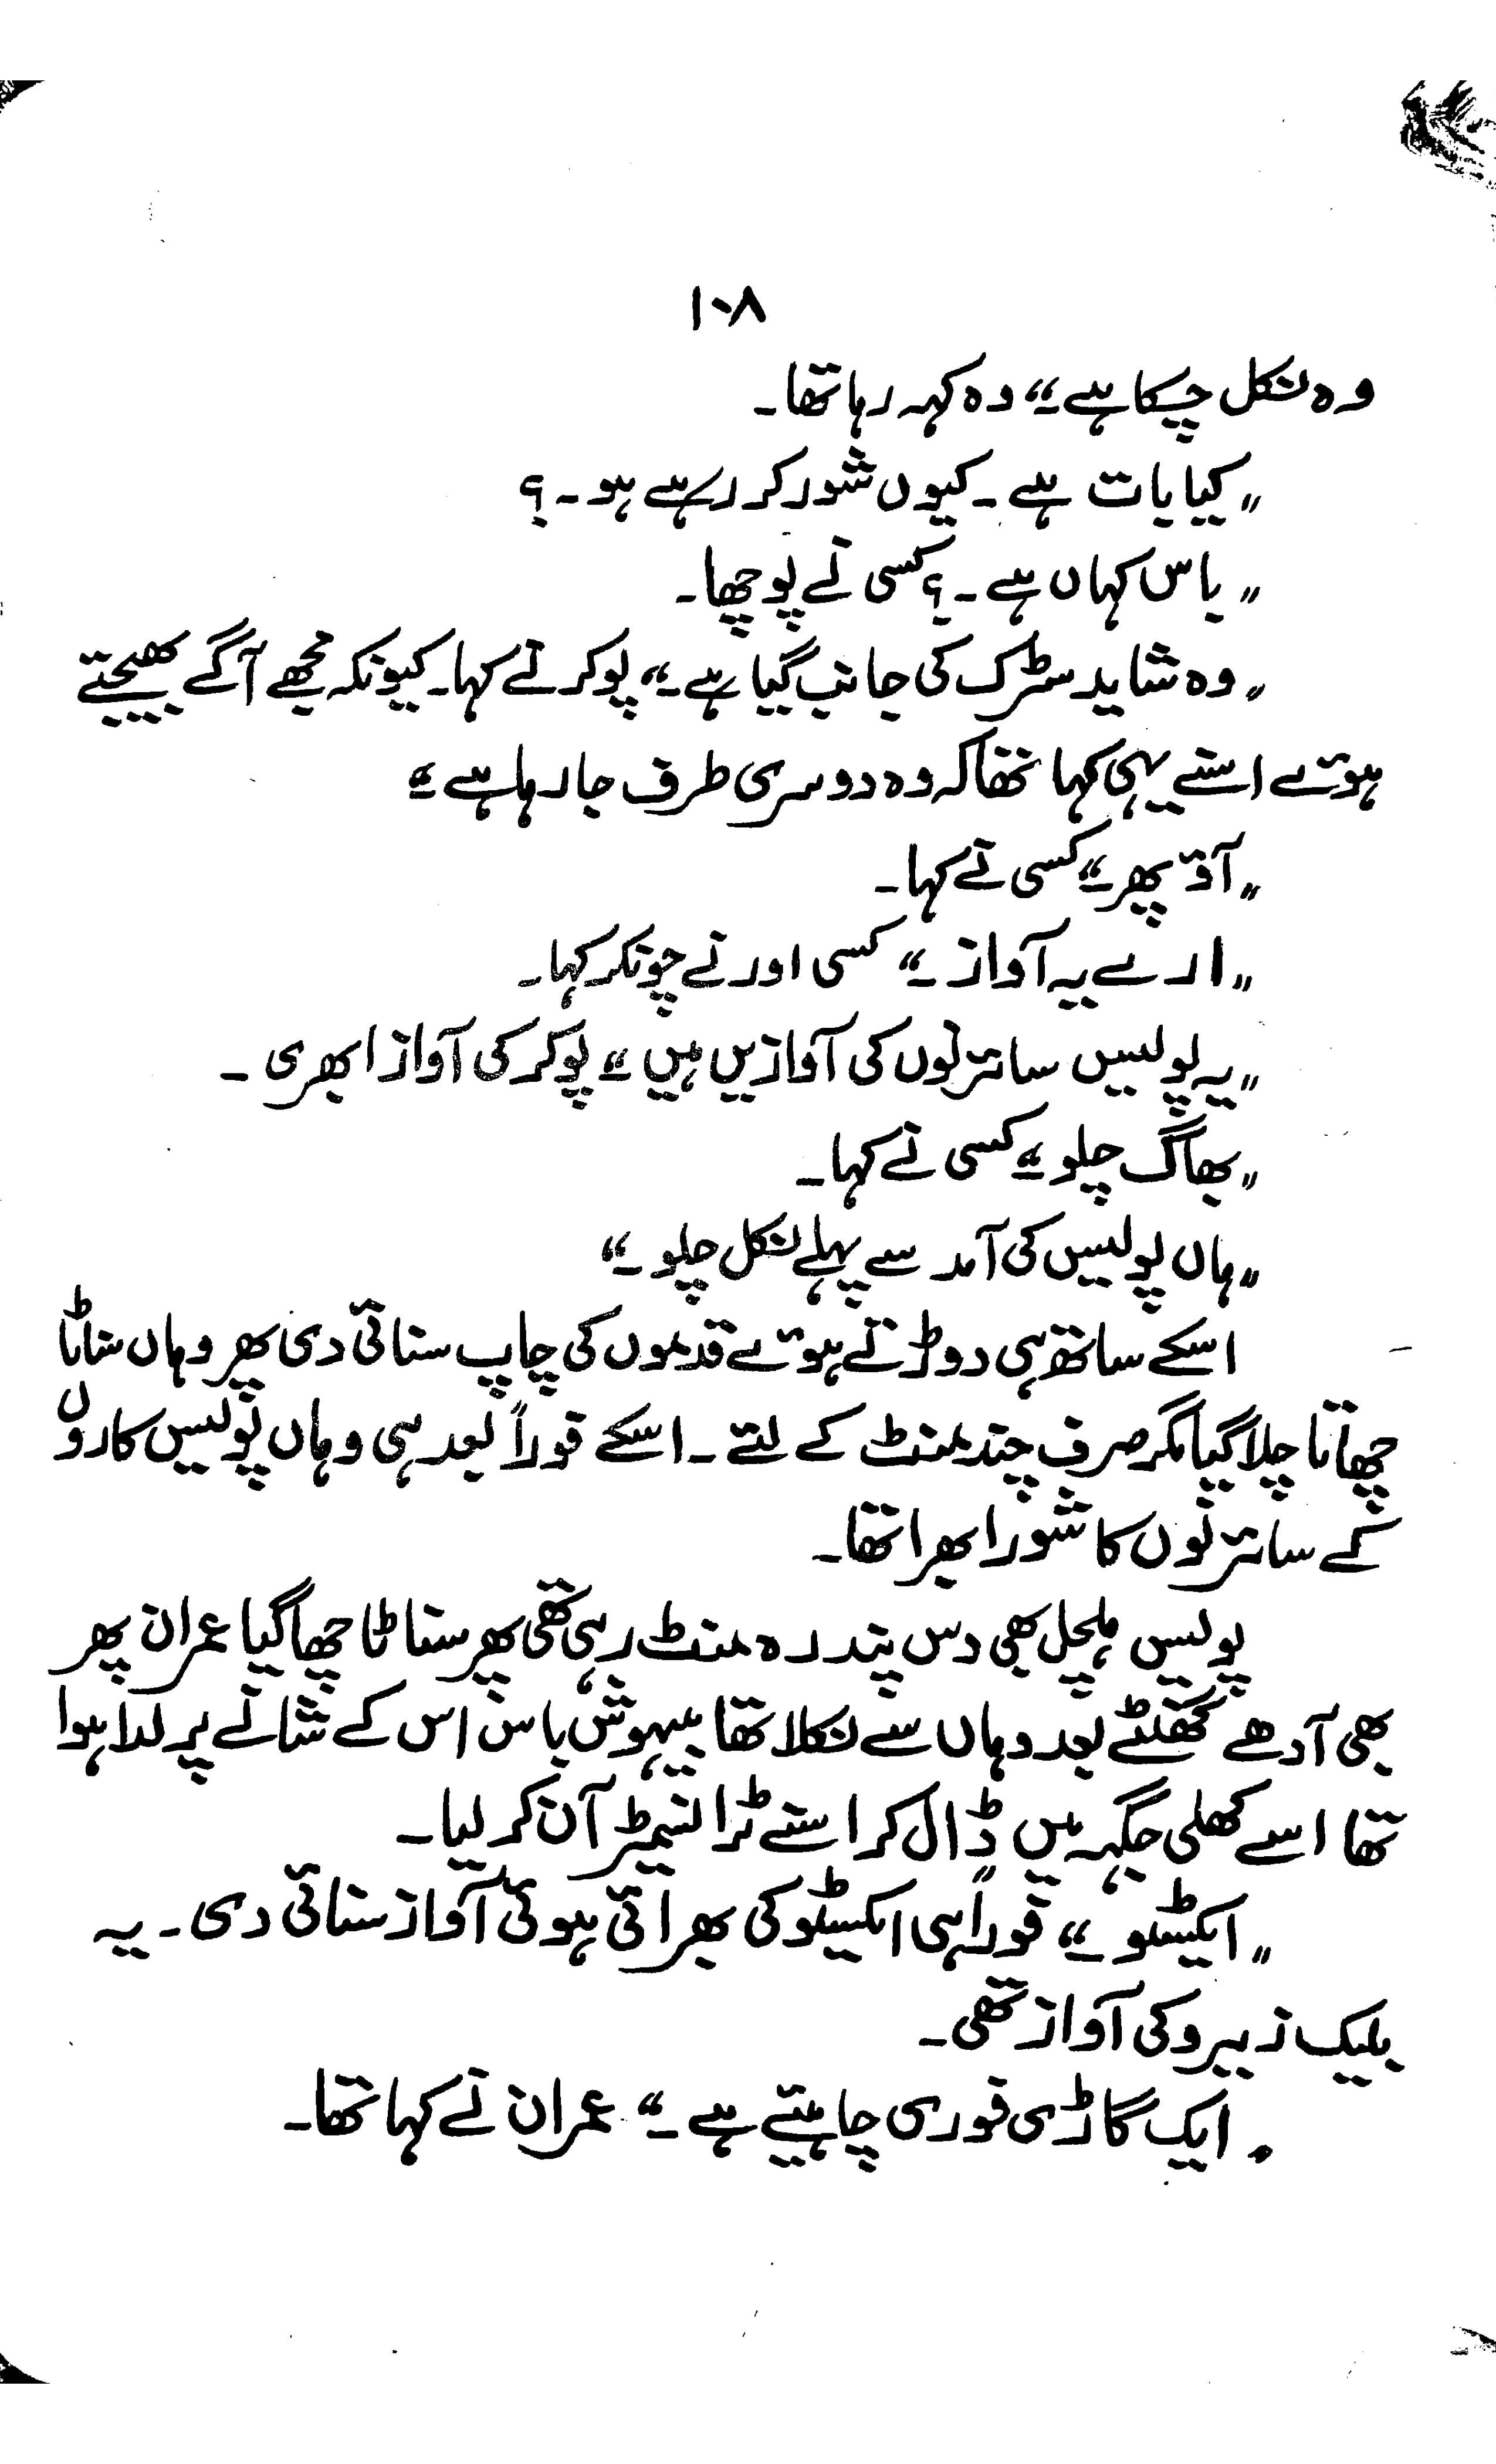 ۱۰۸
وہ نکل چکا ہے۔“ وہ کہہ رہا تھا۔
”کیا بات ہے۔ کیوں شور کر رہے ہو۔؟
”باس کہاں ہے۔؟ کسی نے پوچھا۔
”وہ شاید سڑک کی جانب گیا ہے۔“ پوکر نے کہا۔ کیونکہ مجھے آگے بھیجتے
ہوئے اسنے یہی کہا تھا کہ وہ دوسری طرف جا رہا ہے۔“
”آؤ پھر۔“ کسی نے کہا۔
”ارے یہ آواز۔“ کسی اور نے چونکر کہا۔
”یہ پولیس سائرنوں کی آوازیں ہیں۔“ پوکر کی آواز ابھری۔
”بھاگ چلو۔“ کسی نے کہا۔
”ہاں پولیس کی آمد سے پہلے نکل چلو۔“
اسکے ساتھ ہی دوڑتے ہوئے قدموں کی چاپ سنائی دی پھر وہاں سناٹا
چھاتا چلا گیا مگر صرف چند منٹ کے لئے۔ اسکے فوراً بعد ہی وہاں پولیس کاروں
کے سائرنوں کا شور ابھرا تھا۔
پولیس ہلچل بھی دس پندرہ منٹ رہی تھی پھر سناٹا چھا گیا عمران پھر
بھی آدھے گھنٹے بعد وہاں سے نکلا تھا بیہوش باس اس کے شانے پر لدا ہوا
تھا اسے کھلی جگہ میں ڈال کر اسنے ٹرانسمیٹر آن کر لیا۔
”ایکسٹو۔“ فوراً ہی ایکسٹو کی بھرائی ہوئی آواز سنائی دی۔ یہ
بلیک زیرو کی آواز تھی۔
”ایک گاڑی فوری چاہیئے ہے۔“ عمران نے کہا تھا۔